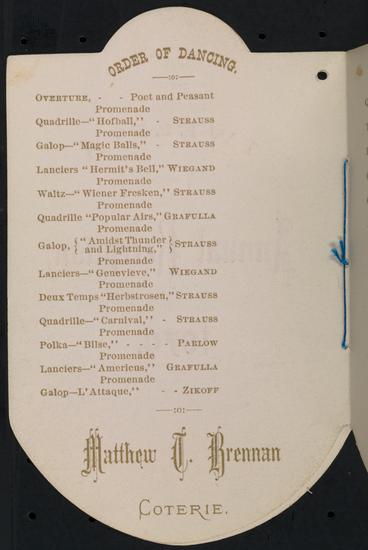 ORDER OF DANCING.
—:o:—
OVERTURE, - - Poet and Peasant
Promenade
Quadrille—"Hofball," - STRAUSS
Promenade
Galop—"Magic Balls," - STRAUSS
Promenade
Lanciers "Hermit's Bell," WIEGAND
Promenade
Waltz—"Wiener Fresken," STRAUSS
Promenade
Quadrille "Popular Airs," GRAFULLA
Promenade
Galop, { "Amidst Thunder and Lightning," } STRAUSS
Promenade
Lanciers—"Genevieve," WIEGAND
Promenade
Deux Temps "Herbstrosen," STRAUSS
Promenade
Quadrille—"Carnival," - STRAUSS
Promenade
Polka—"Bilse," - - - - PARLOW
Promenade
Lanciers—"Americus," GRAFULLA
Promenade
Galop—L'Attaque," - - ZIKOFF
—:o:—
Matthew T. Brennan
COTERIE.